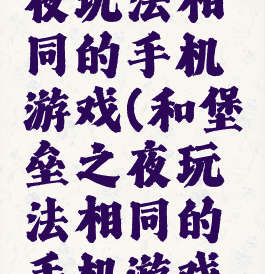 夜玩法相
同的手机
游戏(和堡
垒之夜玩
法相同的
手机游戏